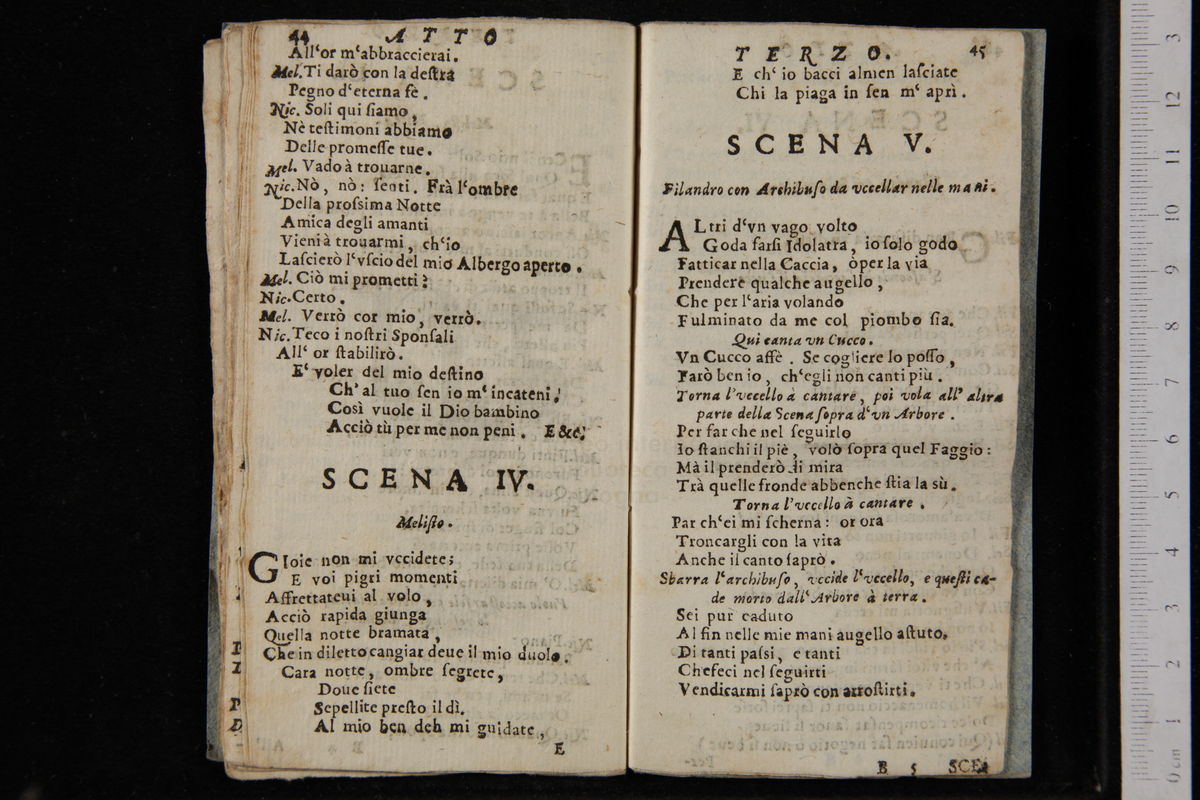 44 ATTO
All'or m'abbraccierai.
Mel. Ti darò con la deſtra
Pegno d'eterna fè.
Nic. Soli qui ſiamo,
Nè teſtimoni abbiamo
Delle promeſſe tue.
Mel. Vado à trouarne.
Nic. Nò, nò: ſenti. Frà l'ombre
Della proſsima Notte
Amica degli amanti
Vieni à trouarmi, ch'io
Laſcierò l'vſcio del mio Albergo aperto.
Mel. Ciò mi prometti?
Nic. Certo.
Mel. Verrò cor mio, verrò.
Nic. Teco i noſtri Sponſali
All' or ſtabilirò.
E' voler del mio deſtino
Ch' al tuo ſen io m' incateni,
Così vuole il Dio bambino
Acciò tù per me non peni. E &c.
SCENA IV.
Meliſto.
GIoie non mi vccidete;
E voi pigri momenti
Affrettateui al volo,
Acciò rapida giunga
Quella notte bramata,
Che in diletto cangiar deue il mio duolo.
Cara notte, ombre ſegrete,
Doue ſiete
Sepellite preſto il dì.
Al mio ben deh mi guidate,
E
TERZO. 45
E ch' io bacci almen laſciate
Chi la piaga in ſen m' aprì.
SCENA V.
Filandro con Archibuſo da vccellar nelle mani.
ALtri d'vn vago volto
Goda farſi Idolatra, io ſolo godo
Fatticar nella Caccia, ò per la via
Prendere qualche augello,
Che per l'aria volando
Fulminato da me col piombo ſia.
Qui canta vn Cucco.
Vn Cucco affè. Se cogliere lo poſſo,
Farò ben io, ch'egli non canti più.
Torna l'vccello à cantare, poi vola all' altra
parte della Scena ſopra d'vn Arbore.
Per far che nel ſeguirlo
Io ſtanchi il piè, volò ſopra quel Faggio:
Mà il prenderò di mira
Trà quelle fronde abbenche ſtia la sù.
Torna l'vccello à cantare.
Par ch'ei mi ſcherna: or ora
Troncargli con la vita
Anche il canto ſaprò.
Sbarra l'archibuſo, vccide l'vccello, e queſti ca-
de morto dall' Arbore à terra.
Sei pur caduto
Al fin nelle mie mani augello aſtuto,
Di tanti paſsi, e tanti
Che feci nel ſeguirti
Vendicarmi ſaprò con arroſtirti.
B 5 SCE-